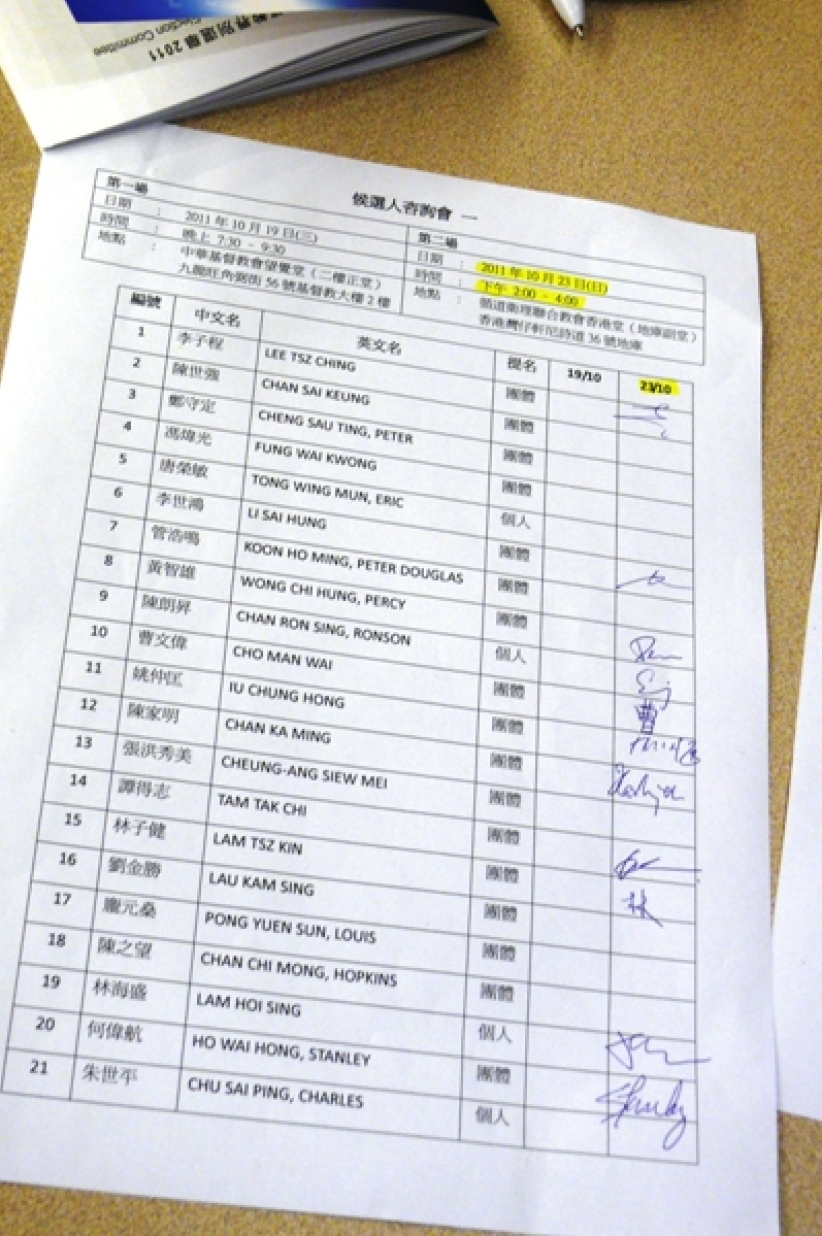 界別選舉 2011
Election Committee
候選人咨詢會 一
第一場
日期 : 2011 年 10 月 19 日(三)
時間 : 晚上 7:30 - 9:30
地點 : 中華基督教會望覺堂（二樓正堂）
九龍旺角弼街 56 號基督教大樓 2 樓
第二場
日期 : 2011 年 10 月 23 日(日)
時間 : 下午 2:00 - 4:00
地點 : 循道衛理聯合教會香港堂（地庫副堂）
香港灣仔軒尼詩道 36 號地庫
編號 中文名 英文名 提名 19/10 23/10
1 李子程 LEE TSZ CHING 團體
2 陳世強 CHAN SAI KEUNG 團體
3 鄭守定 CHENG SAU TING, PETER 團體
4 馮煒光 FUNG WAI KWONG 團體
5 唐榮敏 TONG WING MUN, ERIC 個人
6 李世鴻 LI SAI HUNG 團體
7 管浩鳴 KOON HO MING, PETER DOUGLAS 團體
8 黃智雄 WONG CHI HUNG, PERCY 團體
9 陳朗昇 CHAN RON SING, RONSON 個人
10 曹文偉 CHO MAN WAI 團體 曹
11 姚仲匡 IU CHUNG HONG 團體
12 陳家明 CHAN KA MING 團體
13 張洪秀美 CHEUNG-ANG SIEW MEI 團體
14 譚得志 TAM TAK CHI 團體
15 林子健 LAM TSZ KIN 團體 林
16 劉金勝 LAU KAM SING 團體
17 龐元燊 PONG YUEN SUN, LOUIS 團體
18 陳之望 CHAN CHI MONG, HOPKINS 團體
19 林海盛 LAM HOI SING 個人
20 何偉航 HO WAI HONG, STANLEY 團體 Stanley
21 朱世平 CHU SAI PING, CHARLES 個人